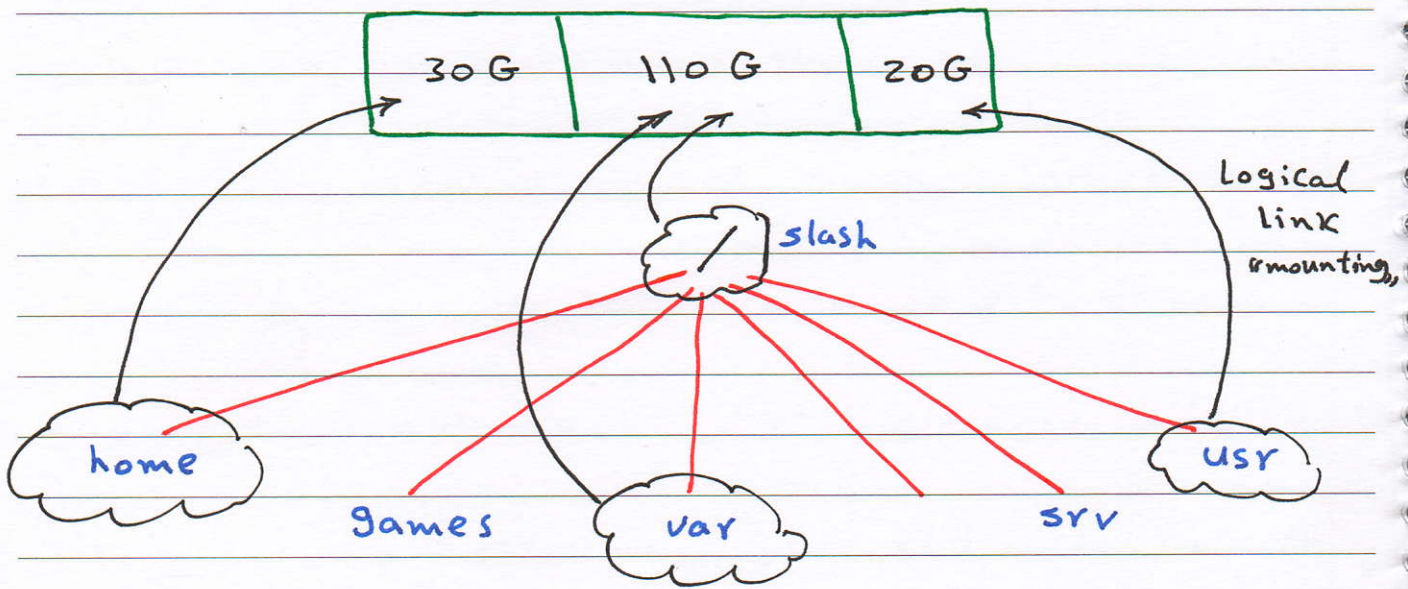 30 G 110 G 20G
Logical
link
“mounting„
/ slash
home
usr
games
var
srv